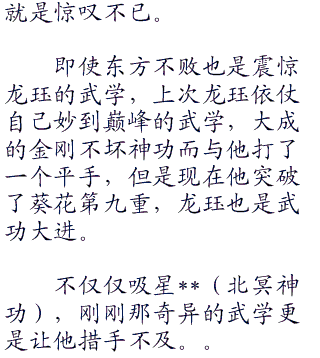 就是惊叹不已。
即使东方不败也是震惊
龙珏的武学，上次龙珏依仗
自己妙到巅峰的武学，大成
的金刚不坏神功而与他打了
一个平手，但是现在他突破
了葵花第九重，龙珏也是武
功大进。
不仅仅吸星**（北冥神
功），刚刚那奇异的武学更
是让他措手不及。。